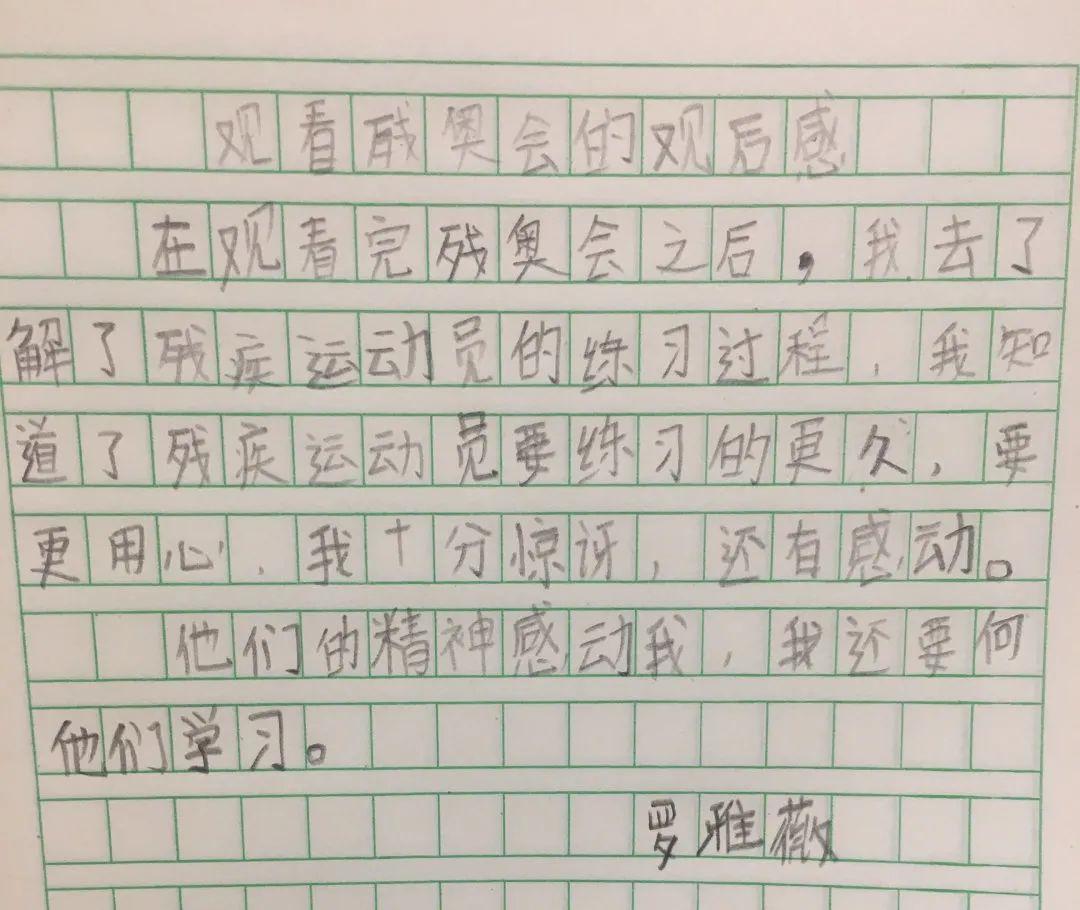 观看残奥会的观后感
在观看完残奥会之后，我去了
解了残疾运动员的练习过程，我知
道了残疾运动员要练习的更久，要
更用心，我十分惊讶，还有感动。
他们的精神感动我，我还要何
他们学习。
罗雅薇